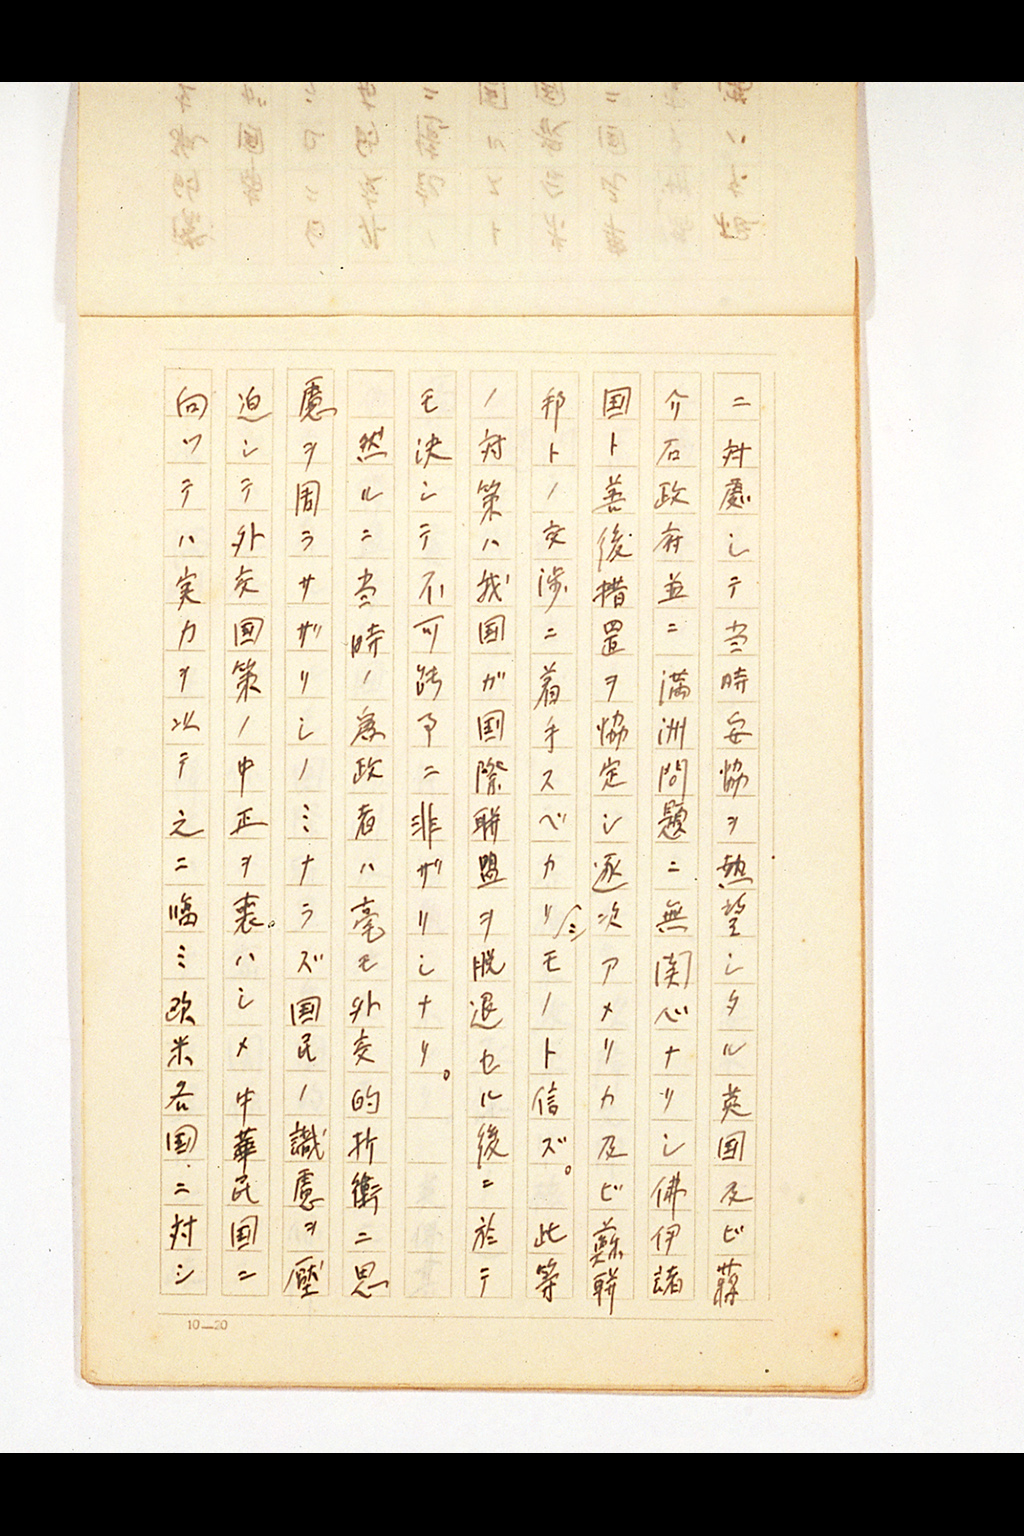 ニ対處シテ当時妥協ヲ熱望シタル英国及ビ蒋
介石政府並ニ満洲問題ニ無関心ナリシ佛伊諸
国ト善後措置ヲ協定シ逐次アメリカ及ビ蘇聯
邦トノ交渉ニ着手スベカリシモノト信ズ。此等
ノ対策ハ我国ガ国際聯盟ヲ脱退セル後ニ於テ
モ決シテ不可能事ニ非ザリシナリ。
然ルニ当時ノ為政者ハ毫モ外交的折衝ニ思
慮ヲ周ラサザリシノミナラズ国民ノ識慮ヲ壓
迫シテ外交国策ノ中正ヲ喪ハシメ中華民国ニ
向ツテハ実力ヲ以テ之ニ臨ミ欧米各国ニ対シ
10—20